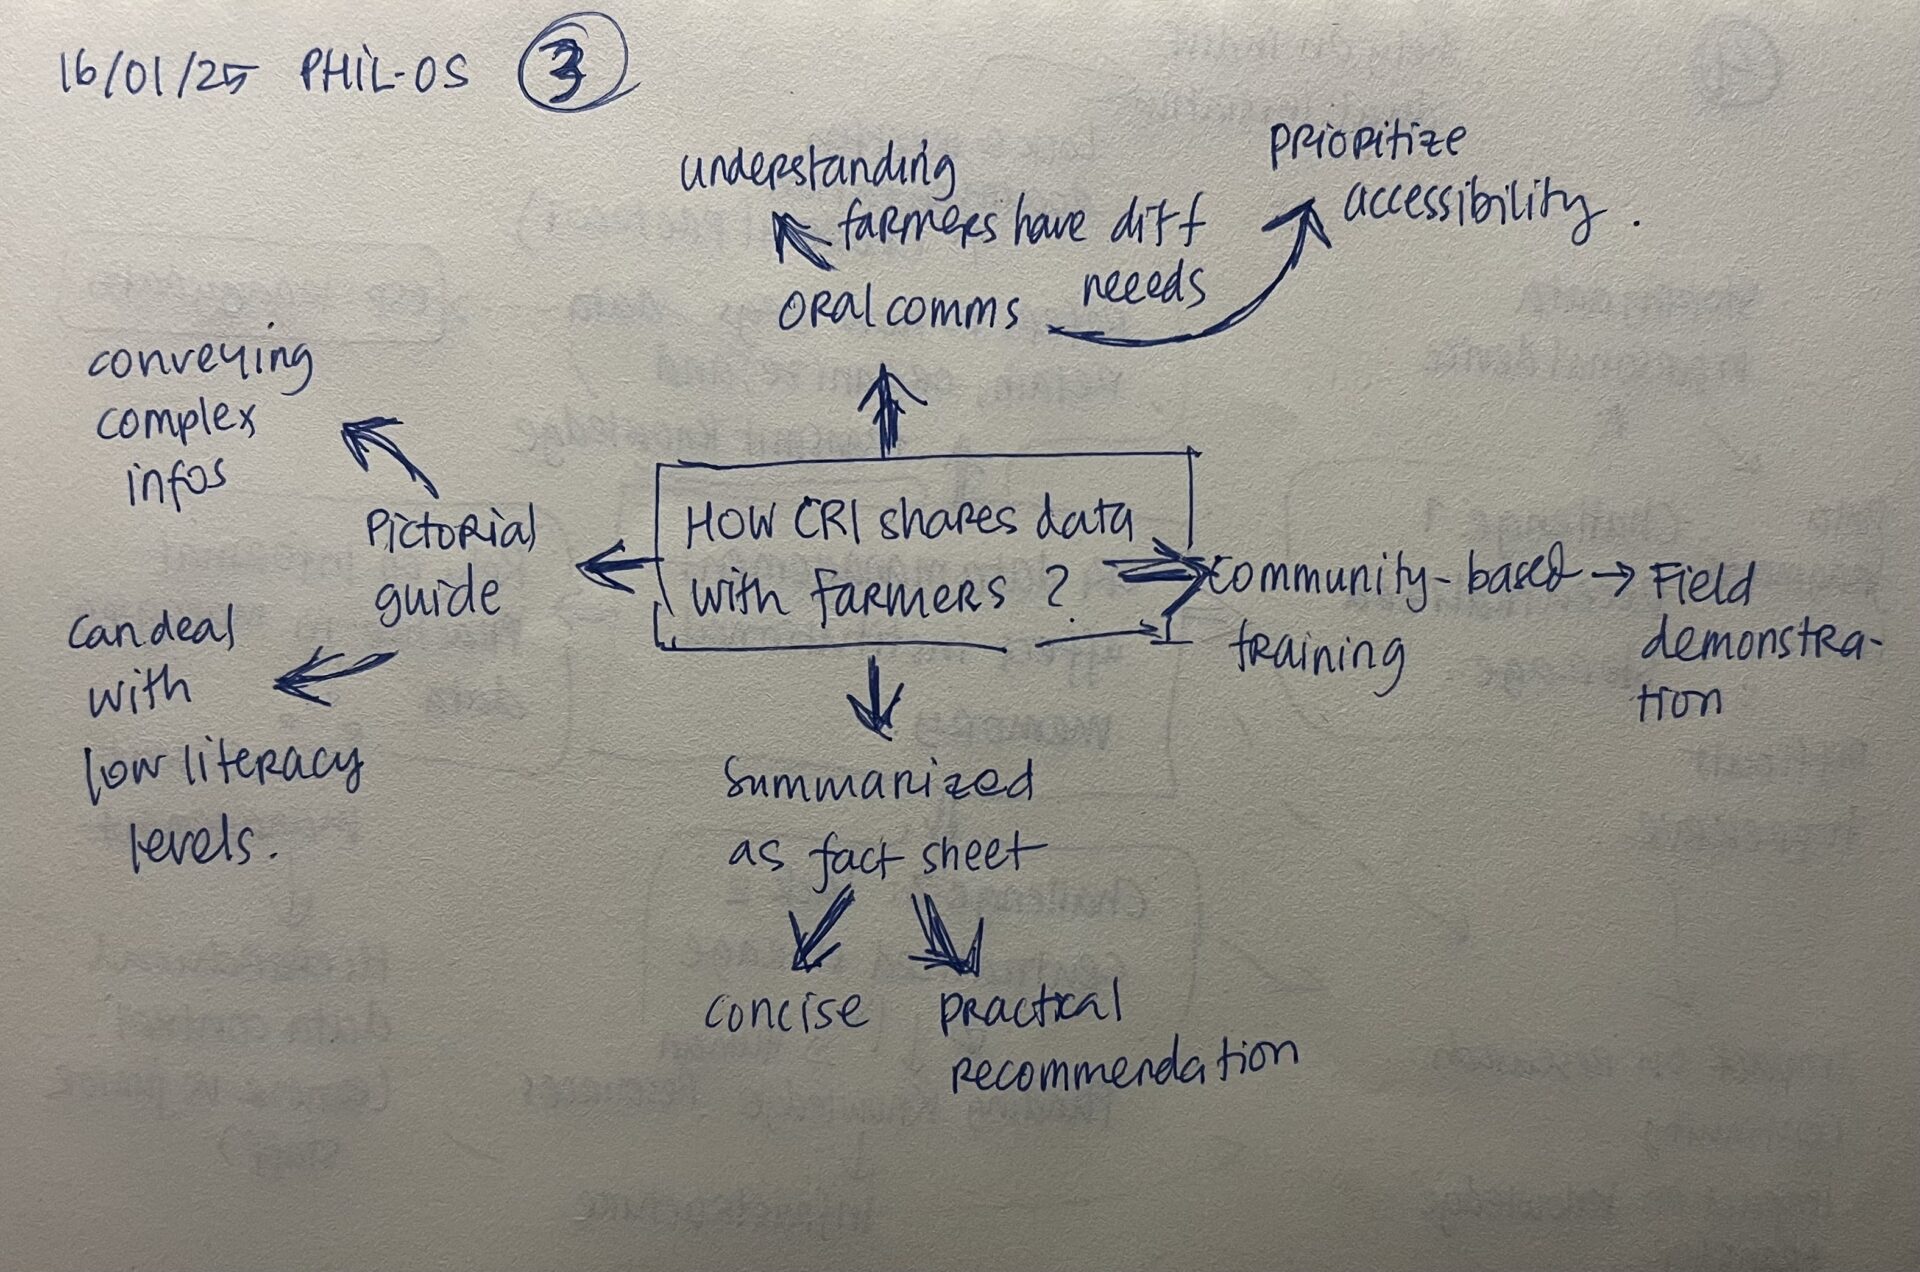 16/01/25 PHIL-OS 3
understanding
farmers have diff
neeeds
prioritize
accessibility.
oral comms
conveying
complex
infos
Pictorial
guide
can deal
with
low literacy
levels.
HOW CRI shares data
with farmers ?
community-based → Field
training
demonstra-
tion
Summarized
as fact sheet
concise
practical
recommendation